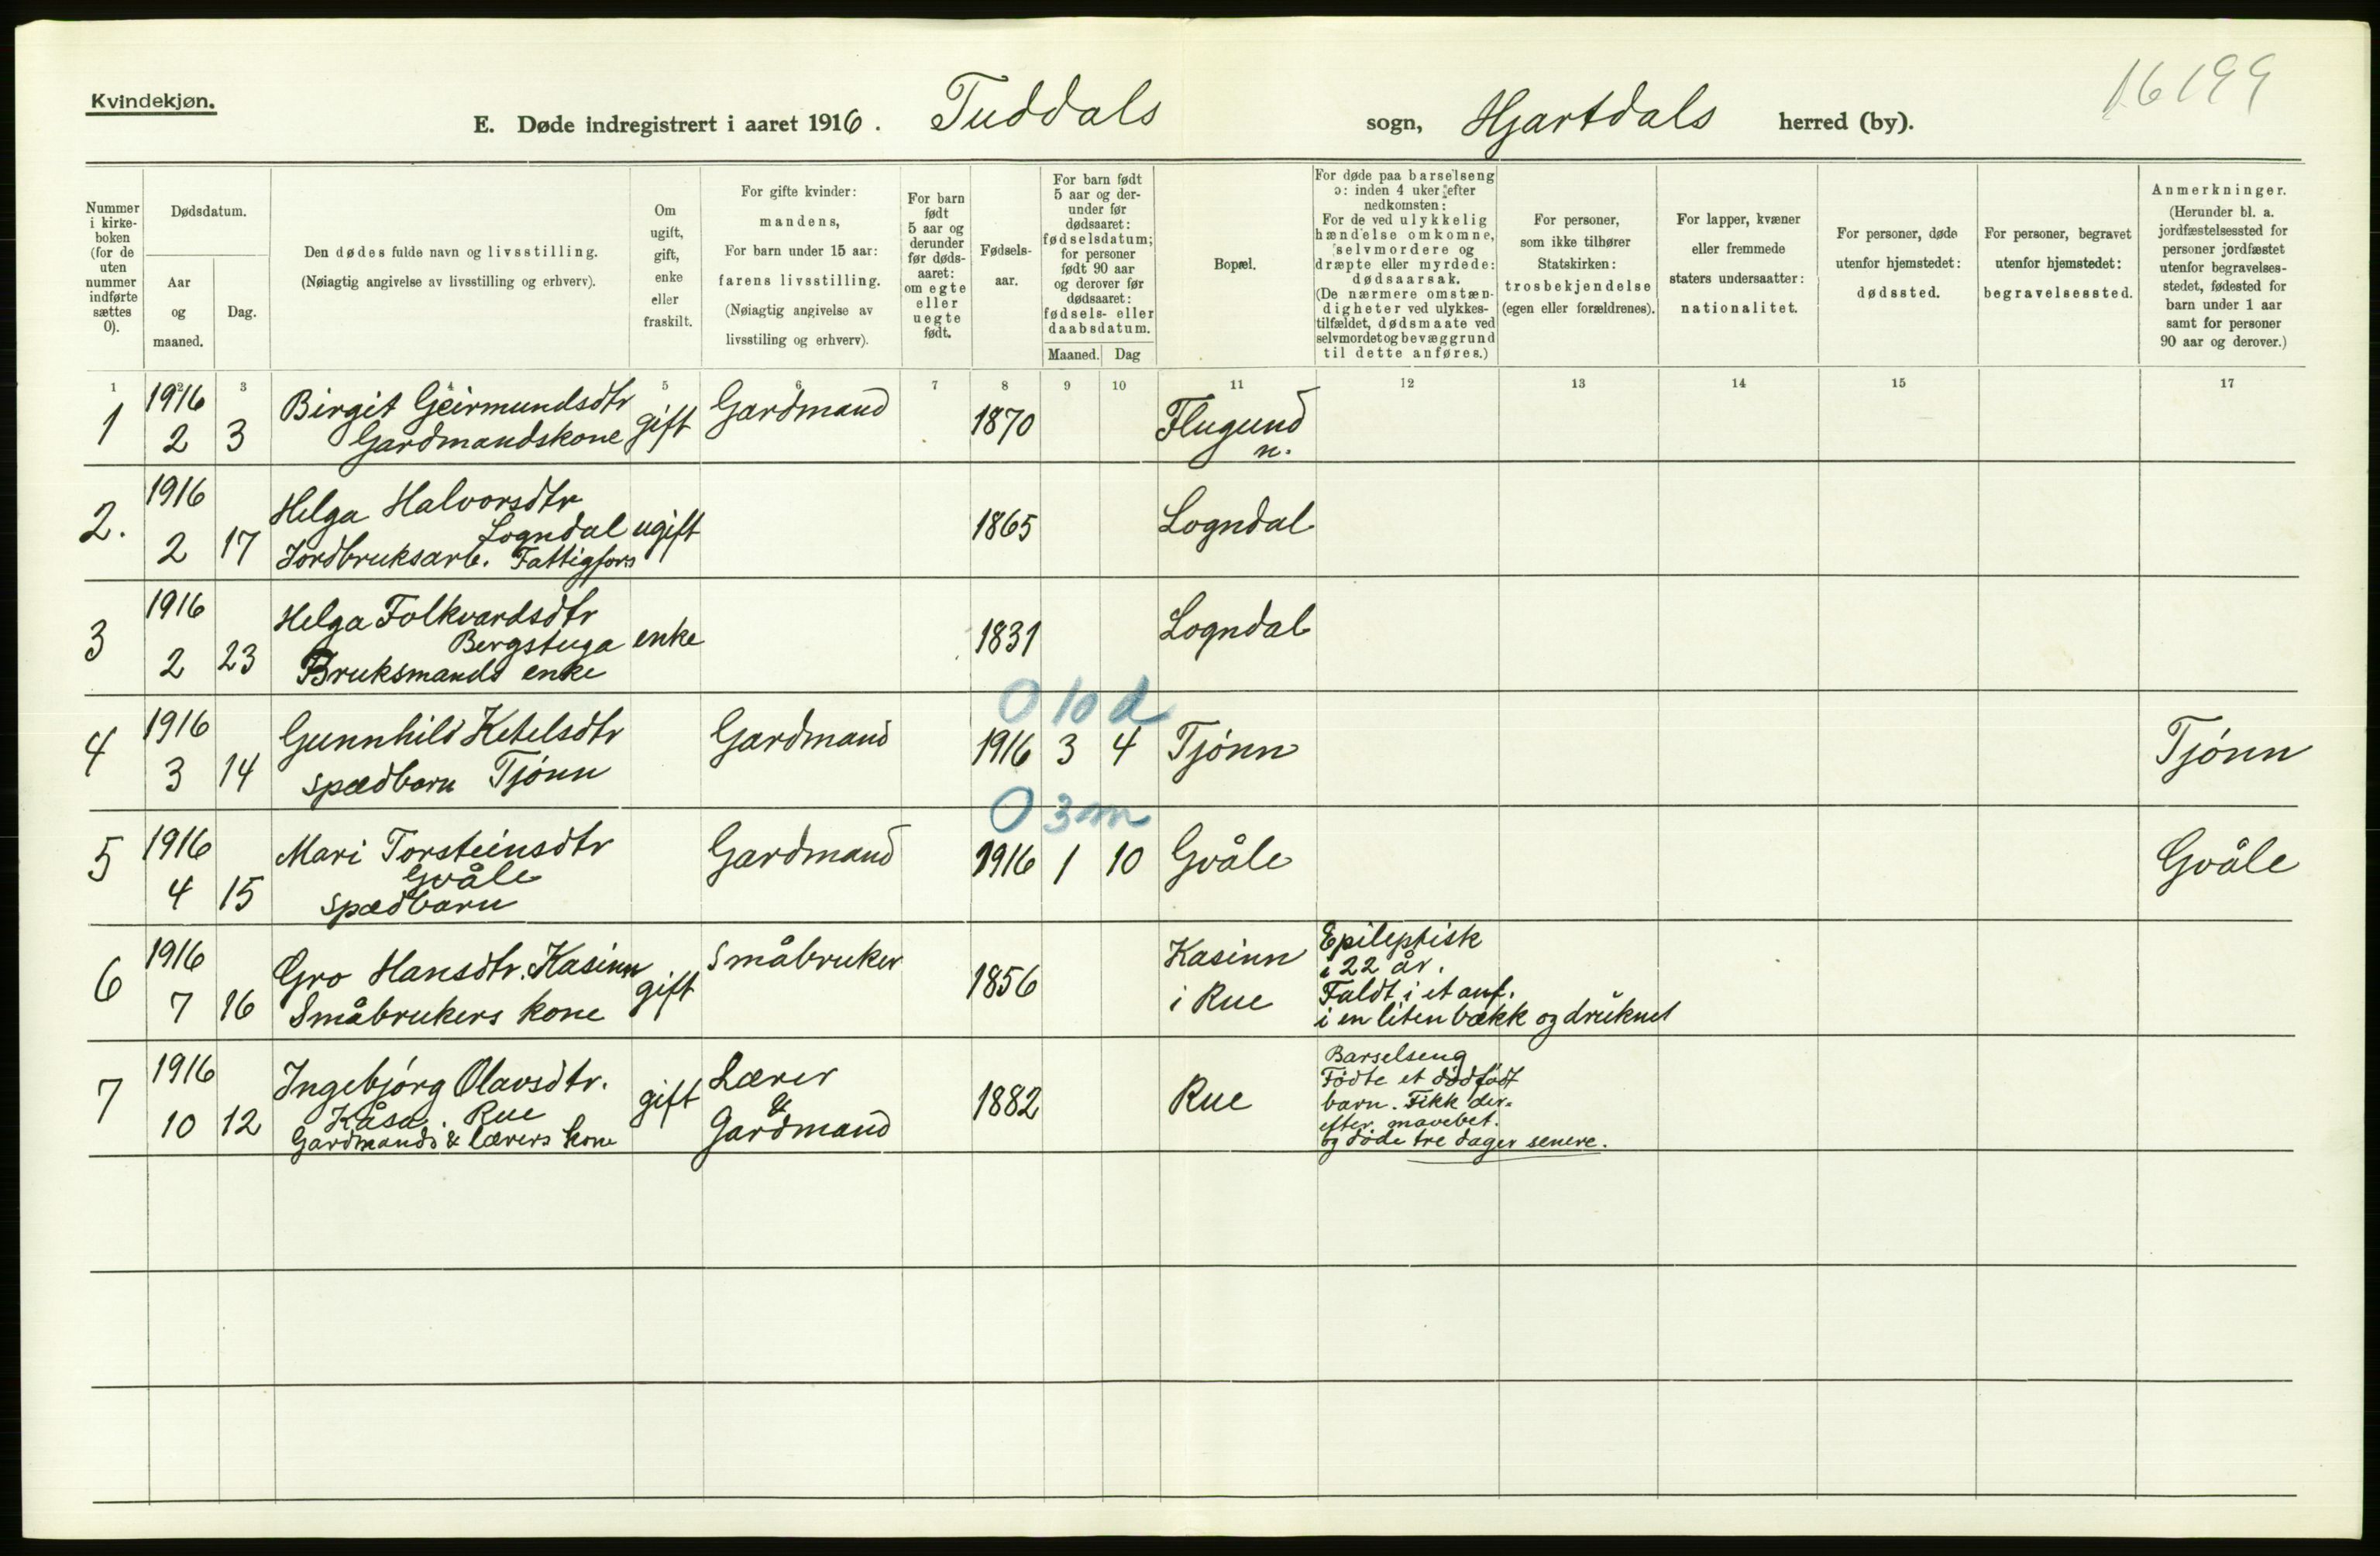 16199
Kvindekjøn.
E. Døde indregistrert i aaret 1916. Tuddals sogn, Hjartdals herred (by).
Nummer
i kirke-
boken
(for de
uten
nummer
indførte
sættes
0).
Dødsdatum.
Aar
og
maaned.
Dag.
Den dødes fulde navn og livsstilling.
(Nøiagtig angivelse av livsstilling og erhverv).
Om
ugift,
gift,
enke
eller
fraskilt.
For gifte kvinder:
mandens,
For barn under 15 aar:
farens livsstilling.
(Nøiagtig angivelse av
livsstiling og erhverv).
For barn
født
5 aar og
derunder
før døds-
aaret:
om egte
eller
uegte
født.
Fødsels-
aar.
For barn født
5 aar og der-
under før
dødsaaret:
fødselsdatum;
for personer
født 90 aar
og derover før
dødsaaret:
fødsels- eller
daabsdatum.
Maaned. Dag
Bopæl.
For døde paa barselseng
ɔ: inden 4 uker efter
nedkomsten:
For de ved ulykkelig
hændelse omkomne,
selvmordere og
dræpte eller myrdede:
dødsaarsak.
(De nærmere omstæn-
digheter ved ulykkes-
tilfældet, dødsmaate ved
selvmordet og bevæggrund
til dette anføres.)
For personer,
som ikke tilhører
Statskirken:
trosbekjendelse
(egen eller forældrenes).
For lapper, kvæner
eller fremmede
staters undersaatter:
nationalitet.
For personer, døde
utenfor hjemstedet:
dødssted.
For personer, begravet
utenfor hjemstedet:
begravelsessted.
Anmerkninger.
(Herunder bl. a.
jordfæstelsessted for
personer jordfæstet
utenfor begravelses-
stedet, fødested for
barn under 1 aar
samt for personer
90 aar og derover.)
1 2 3 4 5 6 7 8 9 10 11 12 13 14 15 17
1 1916 2 3 Birgit Geirmundsdtr
Gardmandskone gift Gardmand 1870 Flugund
n.
2. 1916 2 17 Helga Halvorsdtr
Logndal ugift 1865 Logndal
Jordbruksarb. Fattigfors
3 1916 2 23 Helga Folkvardsdtr
Bergstuga enke 1831 Logndal
Bruksmands enke
0 10 d
4 1916 3 14 Gunnhild Ketelsdtr Gardmand 1916 3 4 Tjónn Tjónn
spædbarn Tjónn
0 3 m
5 1916 4 15 Mari Torsteinsdtr Gardmand 1916 1 10 Gvåle Gvåle
Gvåle
spædbarn
6 1916 7 16 Gro Hansdtr. Kasinn gift Småbruker 1856 Kasinn
i Rue
Småbrukers kone
Epileptisk
i 22 år.
Faldt i et anf.
i en liten bækk og druknet
7 1916 10 12 Ingebjórg Olavsdtr. gift Lærer
&
Gardmand 1882 Rue
Kåsa, Rue
Gardmands & lærers kone
Barselseng
Fódte et dódfódt
barn. Fikk der=
efter mavebet.
og dóde tre dager senere.